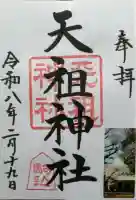 奉拝
天祖神社
令和八年二月十九日